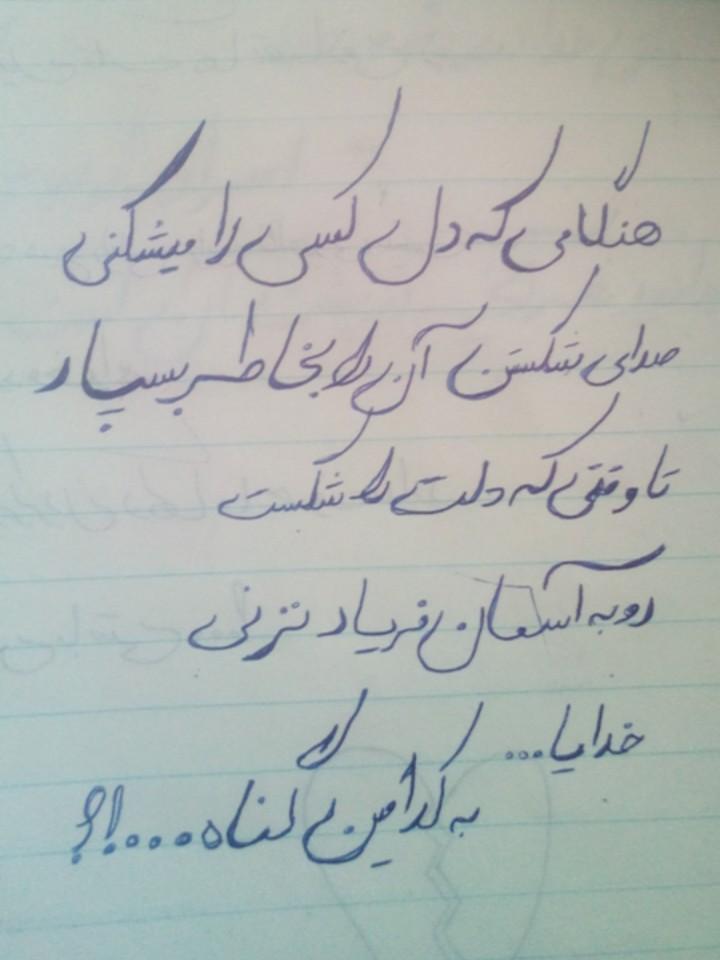 هنگامی که دل کسی را میشکنی
صدای شکستن آن را بخاطر بسپار
تا وقتی که دلت را شکست
رو به آسمان فریاد نزنی
خدایا...
به کدامین گناه....!؟